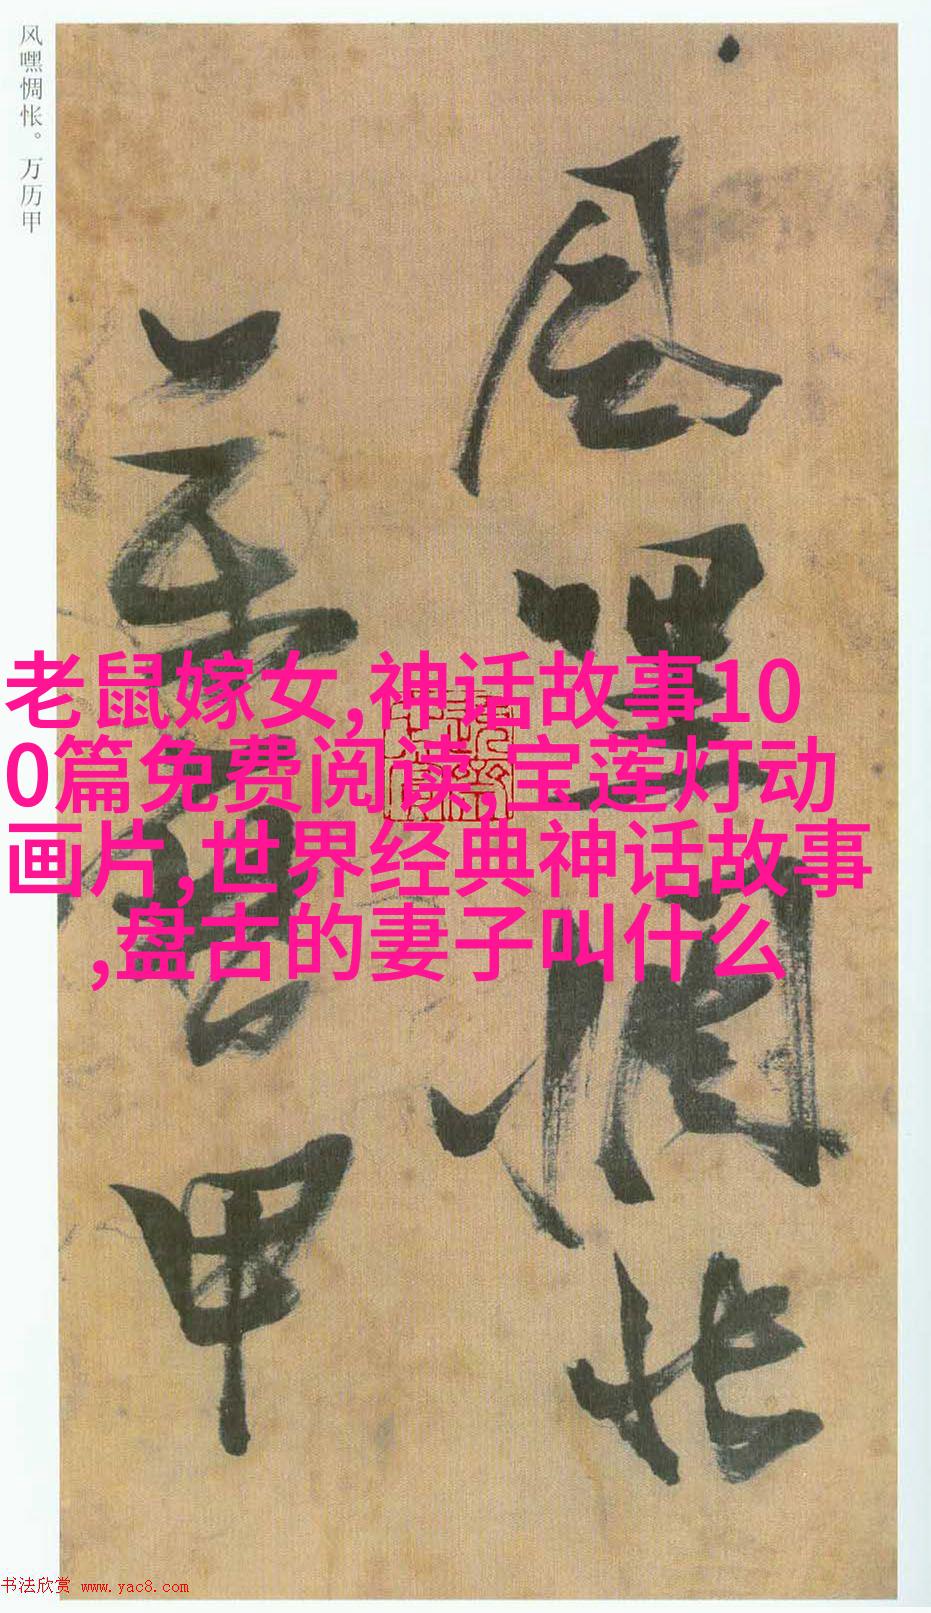 风嘿惆怅。万历甲
风嘿惆怅
万历甲
老鼠嫁女,神话故事10
0篇免费阅读,宝莲灯动
画片,世界经典神话故事
,盘古的妻子叫什么
书法欣赏 www.yac8.com